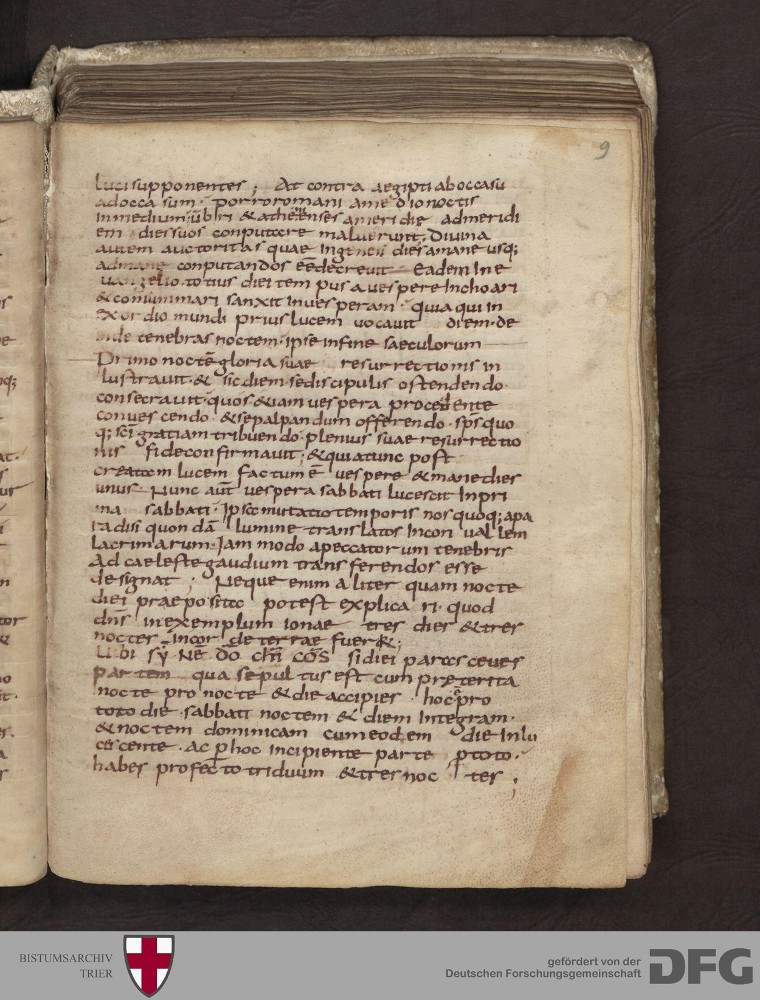 9
luci supponentes ; At contra aegipti ab occasu
ad occa sum · porro romani ame dio noctis
in medium · ūbri & athenenses ameri die ad meridi
em dies suos conputare maluerunt · Diuina
autem auctoritas quae in genesi dies amane usq;
ad mane conputandos eē decreuit Eadem In e
uangelio · totius diei tempus a uespere Inchoari
& consummari sanxit In uesperam · quia qui in
exordio mundi prius lucem uocauit diem · de
inde tenebras noctem · ipse in fine saeculorum
Primo noctē gloria suae resurrectionis in
lustrauit · & sic diem se discipulis ostendendo
consecrauit · quos & iam uespera procedente
conuescendo · & se palpandum offerendo · sps̄ quo
q; sc̄i gratiam tribuendo · plenius suae resurrectio
nis fide confirmauit ; & quia tunc post
creatam lucem factum ē uespere & mane dies
unus · Nunc aūt uespera sabbati lucescit In pri
ma sabbati · Ipsa mutatio temporis nos quoq; apa
radisi quondā lumine translatos In con uallem
lacrimarum · Iam modo apeccatorum tenebris
Ad caeleste gaudium transferendos esse
designat ; Neque enim aliter quam nocte
diei praeposita potest explicari · quod
dn̄s in exemplum ionae tres dies & tres
noctes In cor de terrae fuer& ;
Ubi SȲ NĒ D̄O CHN̄ CŌS si diei partes ceues
partem qua sepultus est cum preterita
nocte pro nocte & die accipies · hoc ē pro
toto die · sabbati noctem & diem Integram ·
& noctem dominicam cum eodem die In lu
cescente · Ac p hoc incipiente parte p toto ·
habes profecto triduum & tres noctes ;
BISTUMSARCHIV
TRIER
gefördert von der
Deutschen Forschungsgemeinschaft
DFG